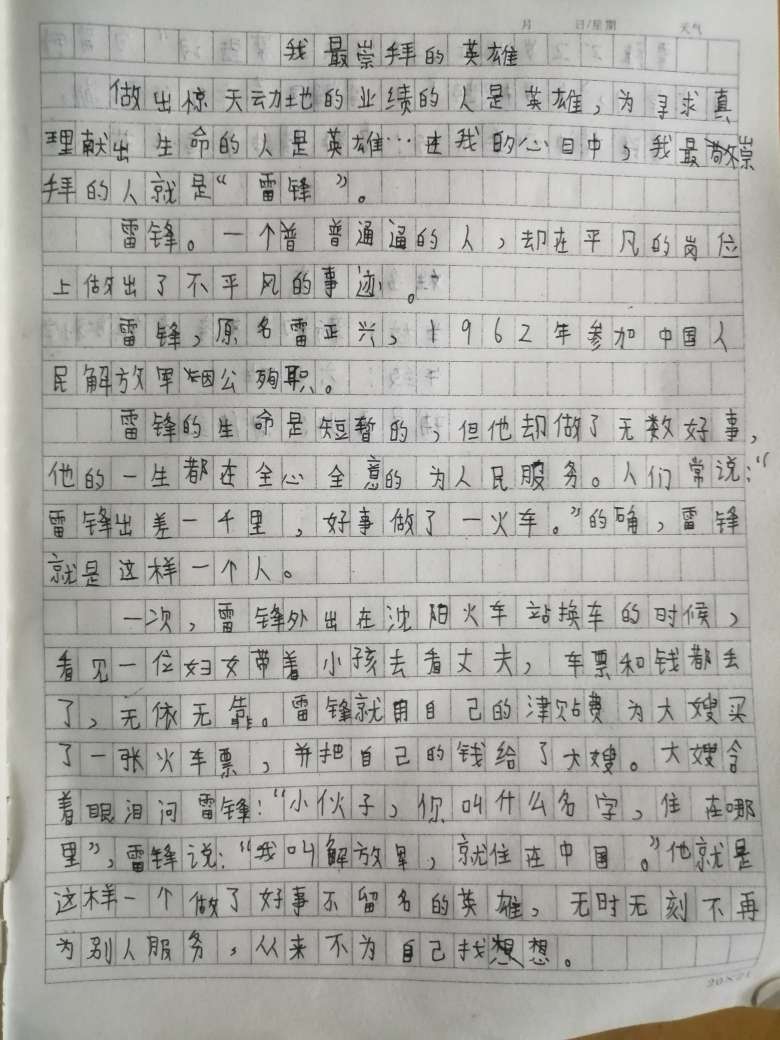 月 日/星期 天气
我最崇拜的英雄
做出惊天动地的业绩的人是英雄，为寻求真
理献出生命的人是英雄…在我的心目中，我最敬崇
拜的人就是“雷锋”。
雷锋。一个普普通通的人，却在平凡的岗位
上做出了不平风的事迹。
雷锋，原名雷正兴，1962年参加中国人
民解放军因公殉职。
雷锋的生命是短暂的，但他却做了无数好事，
他的一生都在全心全意的为人民服务。人们常说：“
雷锋出差一千里，好事做了一火车。”的确，雷锋
就是这样一个人。
一次，雷锋外出在沈阳火车站换车的时候，
看见一位妇女带着小孩去看丈夫，车票和钱都丢
了，无依无靠。雷锋就用自己的津贴费为大嫂买
了一张火车票，并把自己的钱给了大嫂。大嫂含
着眼泪问雷锋：“小伙子，你叫什么名字，住在哪
里”，雷锋说：“我叫解放军，就住在中国。”他就是
这样一个做了好事不留名的英雄，无时无刻不再
为别人服务，从来不为自己找想想。